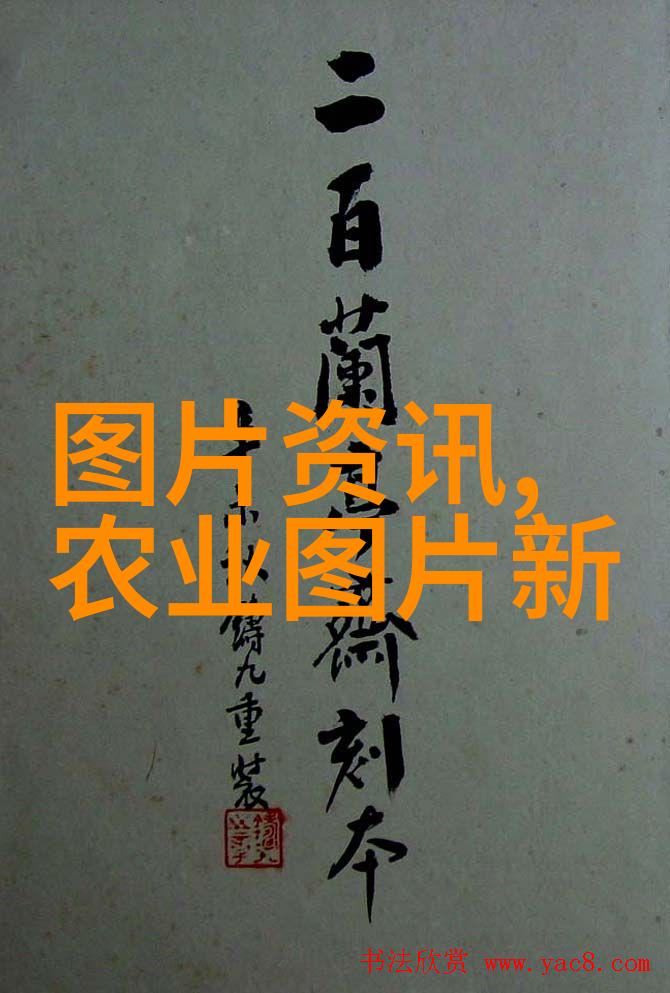 二百蘭亭齋刻本
辛未秋鑄九重裝
图片资讯,
农业图片新
书法欣赏 www.yac8.com